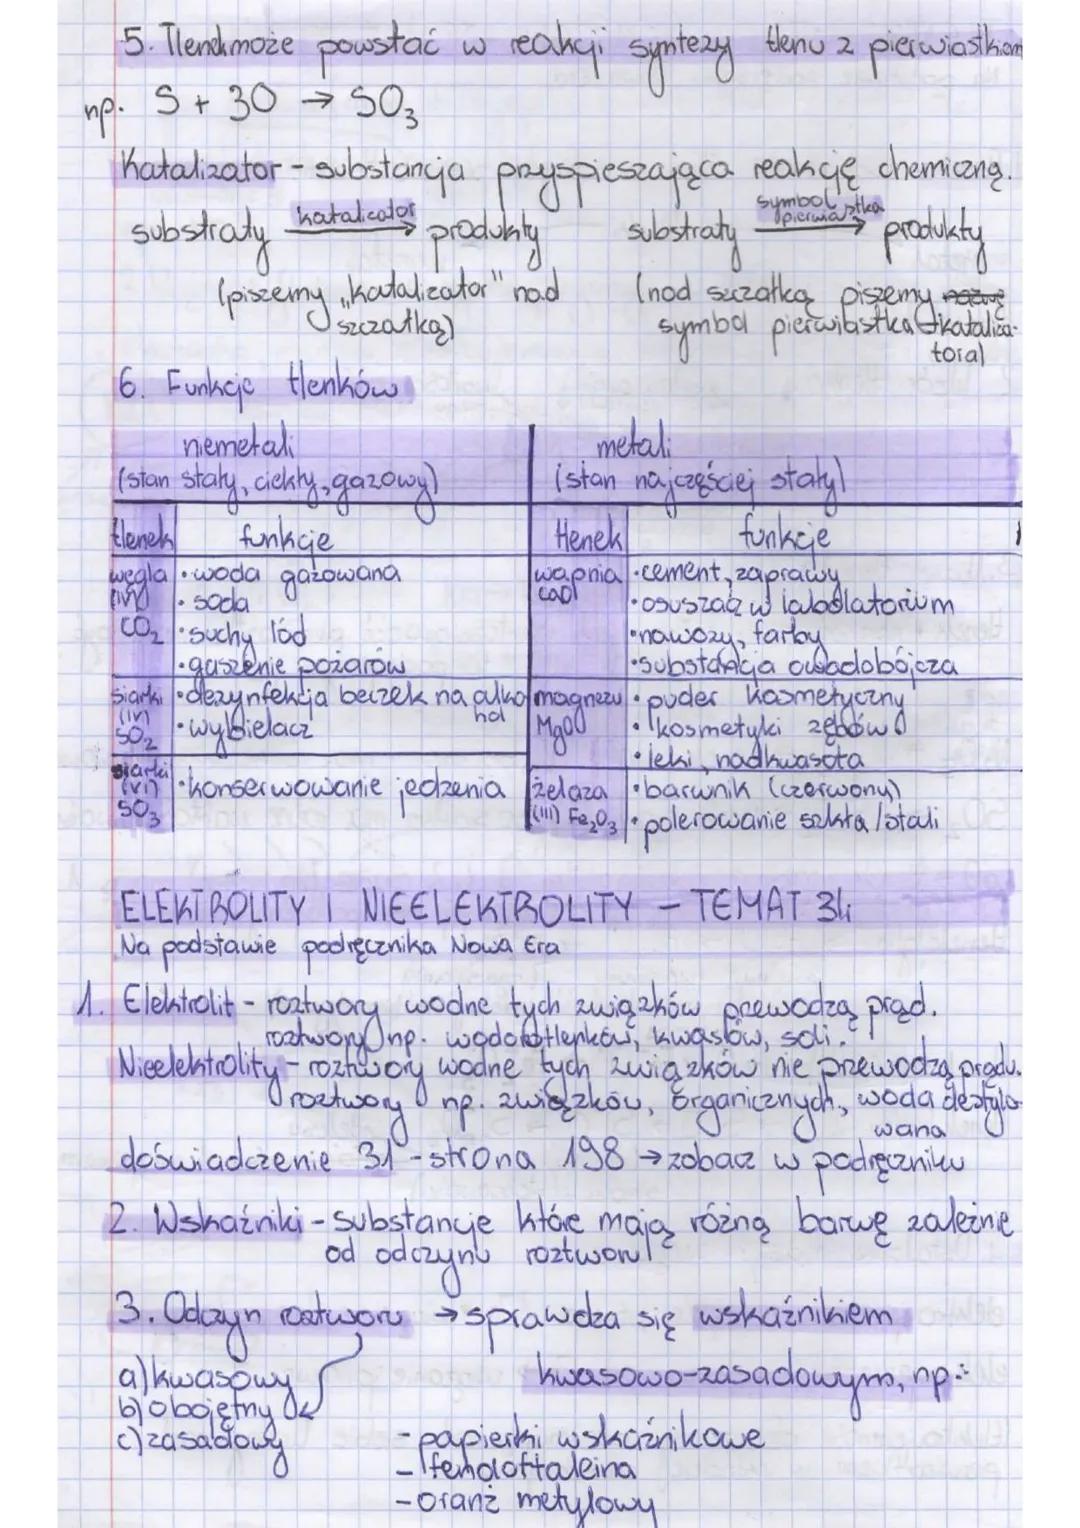 5. Tlenek może powstać w reakcji syntezy tlenu z pierwiastkiem
np. S + 3O → SO₃
Katalizator - substancja przyspieszająca reakcję chemiczną.
substraty katalizator → produkty
(piszemy „katalizator" nad
szczałką)
substraty symbol pierwiastka → produkty
(nad szczałką piszemy nazwę
symbol pierwiastka kataliza-
tora)
6. Funkcje tlenków
niemetali
(stan stały, ciekły, gazowy)
metali
(stan najczęściej stały)
tlenek funkcje
tlenek funkcje
węgla
(IV)
CO₂
• woda gazowana
• soda
• suchy lód
• gaszenie pożarów
wapnia
CaO
• cement, zaprawy
• osuszacz w labolatorium
• nawozy, farby
• substancja owadobójcza
siarki
(IV)
SO₂
• dezynfekcja beczek na alko
hol
• wybielacz
magnezu
MgO
• puder kosmetyczny
• kosmetyki zębów
• leki, nadkwasota
siarki
(VI)
SO₃
• konserwowanie jedzenia
żelaza
(III) Fe₂O₃
• barwnik (czerwony)
• polerowanie szkła/stali
ELEKTROLITY I NIEELEKTROLITY - TEMAT 34
Na podstawie podręcznika Nowa Era
1. Elektrolit - roztwory wodne tych związków przewodzą prąd.
roztwory np. wodorotlenków, kwasów, soli.
Nieelektrolity - roztwory wodne tych związków nie przewodzą prądu.
roztwory np. związków, organicznych, woda destylo-
wana
doświadczenie 31 - strona 198 → zobacz w podręczniku
2. Wskaźniki - substancje które mają różną barwę zależnie
od odczynu roztworu
3. Odczyn roztworu → sprawdza się wskaźnikiem
kwasowo-zasadowym, np.:
a) kwasowy
b) obojętny
c) zasadowy
- papierki wskaźnikowe
- fenoloftaleina
- oranż metylowy